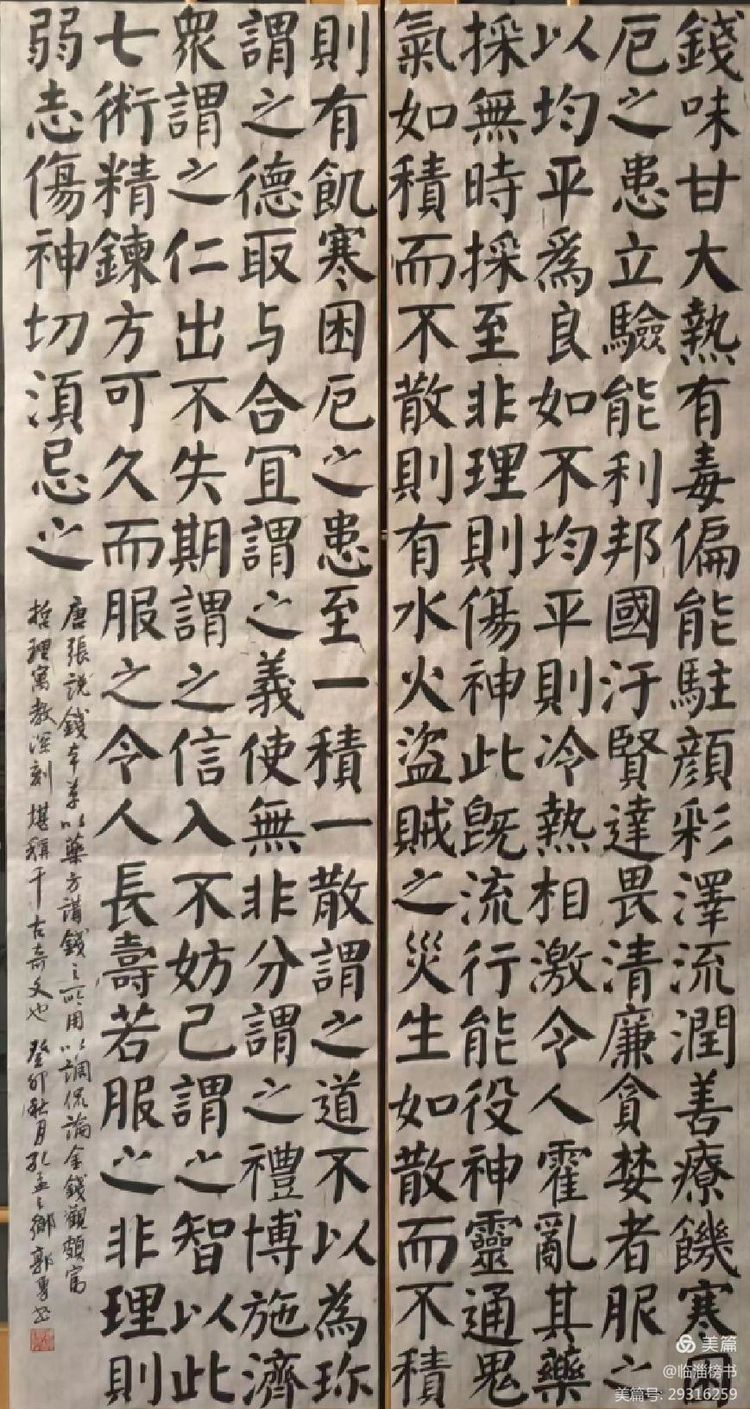 錢味甘大熱有毒偏能駐顏彩澤流潤善療饑寒困
厄之患立驗能利邦國汙賢達畏清廉貪婪者服之
以均平爲良如不均平則冷熱相激令人霍亂其藥
採無時採至非理則傷神此既流行能役神靈通鬼
氣如積而不散則有水火盜賊之災生如散而不積
則有飢寒困厄之患至一積一散謂之道不以為珎
謂之德取与合冝謂之義使無非分謂之禮博施濟
衆謂之仁出不失期謂之信入不妨己謂之智以此
七術精鍊方可久而服之令人長壽若服之非理則
弱志傷神切須忌之
唐張説錢本草以藥方講錢之所用以調侃論金錢觀頗富
哲理寓教深刻堪稱千古奇文也 癸卯秋月孔孟之鄉郭勇書
美篇
@临淄榜书
美篇号: 29316259